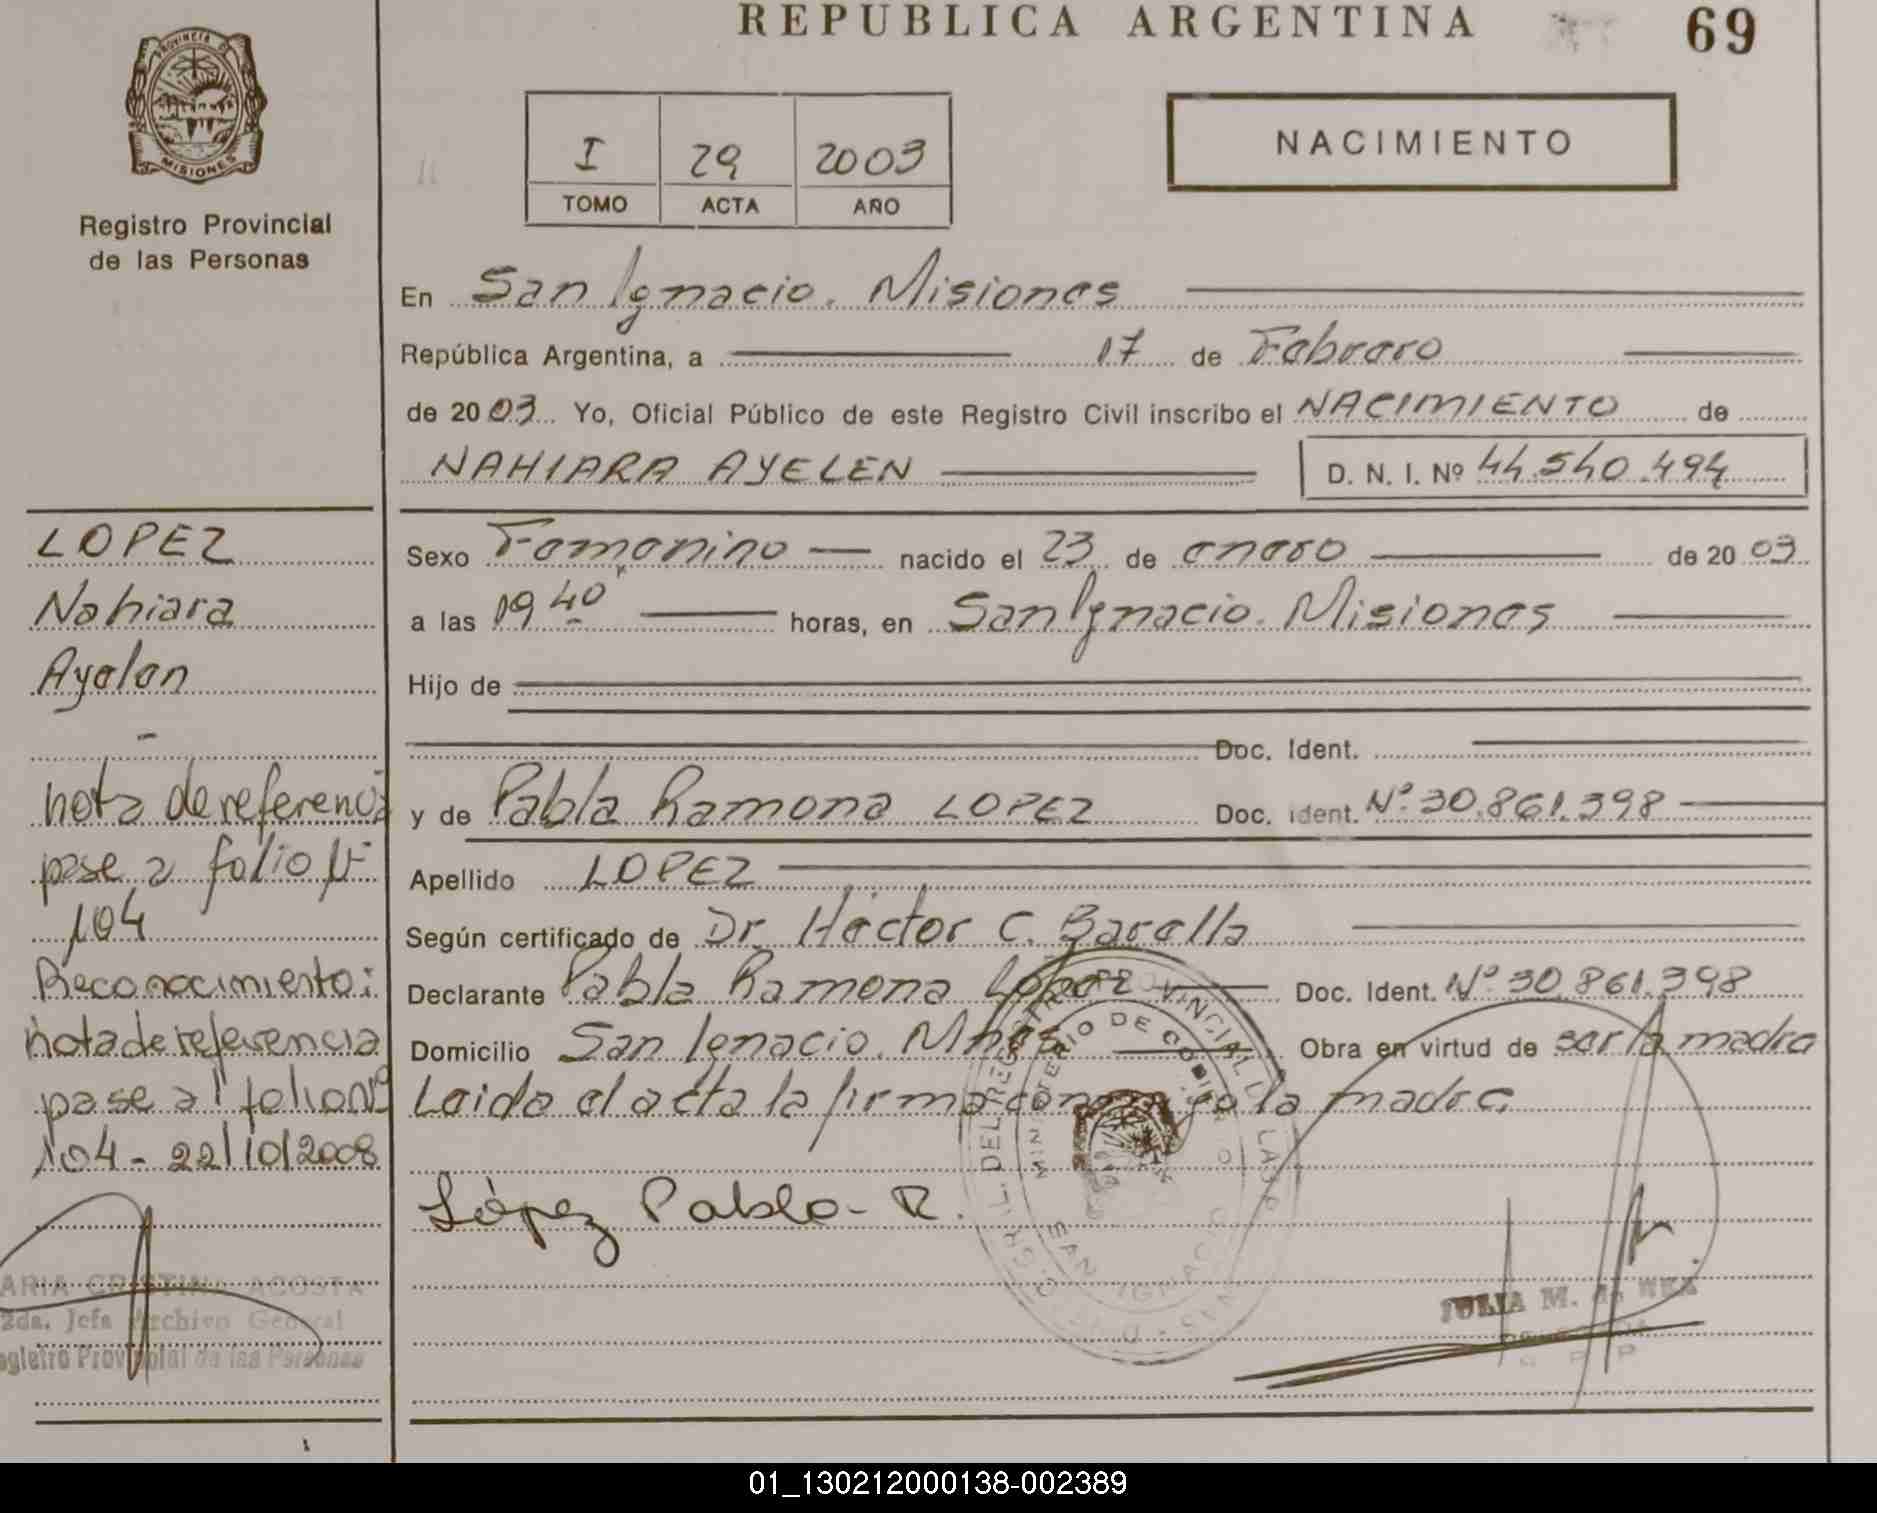 REPUBLICA ARGENTINA
69
PROVINCIA DE
MISIONES
Registro Provincial
de las Personas
I 29 2003
TOMO ACTA AÑO
NACIMIENTO
En San Ignacio. Misiones
República Argentina, a 17 de Febrero
de 2003 Yo, Oficial Público de este Registro Civil inscribo el NACIMIENTO de
NAHIARA AYELEN D. N. I. Nº 44.540.494
Sexo Femenino nacido el 23 de enero de 2003
a las 19 40 horas, en San Ignacio. Misiones
Hijo de
Doc. Ident.
y de Pabla Ramona LOPEZ Doc. ident. Nº 30.861.398
Apellido LOPEZ
Según certificado de Dr. Héctor C. Barella
Declarante Pabla Ramona López Doc. Ident. Nº 30.861.398
Domicilio San Ignacio. Mnes Obra en virtud de ser la madre
Leida el acta la firma conmigo la madre.
López Pabla-R.
JULIA M. de WEK
LOPEZ
Nahiara
Ayelen
-
nota de referencia
pase a folio Nº
104
Reconocimiento:
nota de referencia
pase al folio Nº
104 - 22/10/2008
ARIA CRISTINA ACOSTA
2da. Jefa Archivo General
egistro Provincial de las Personas
SAN IGNACIO
01_130212000138-002389